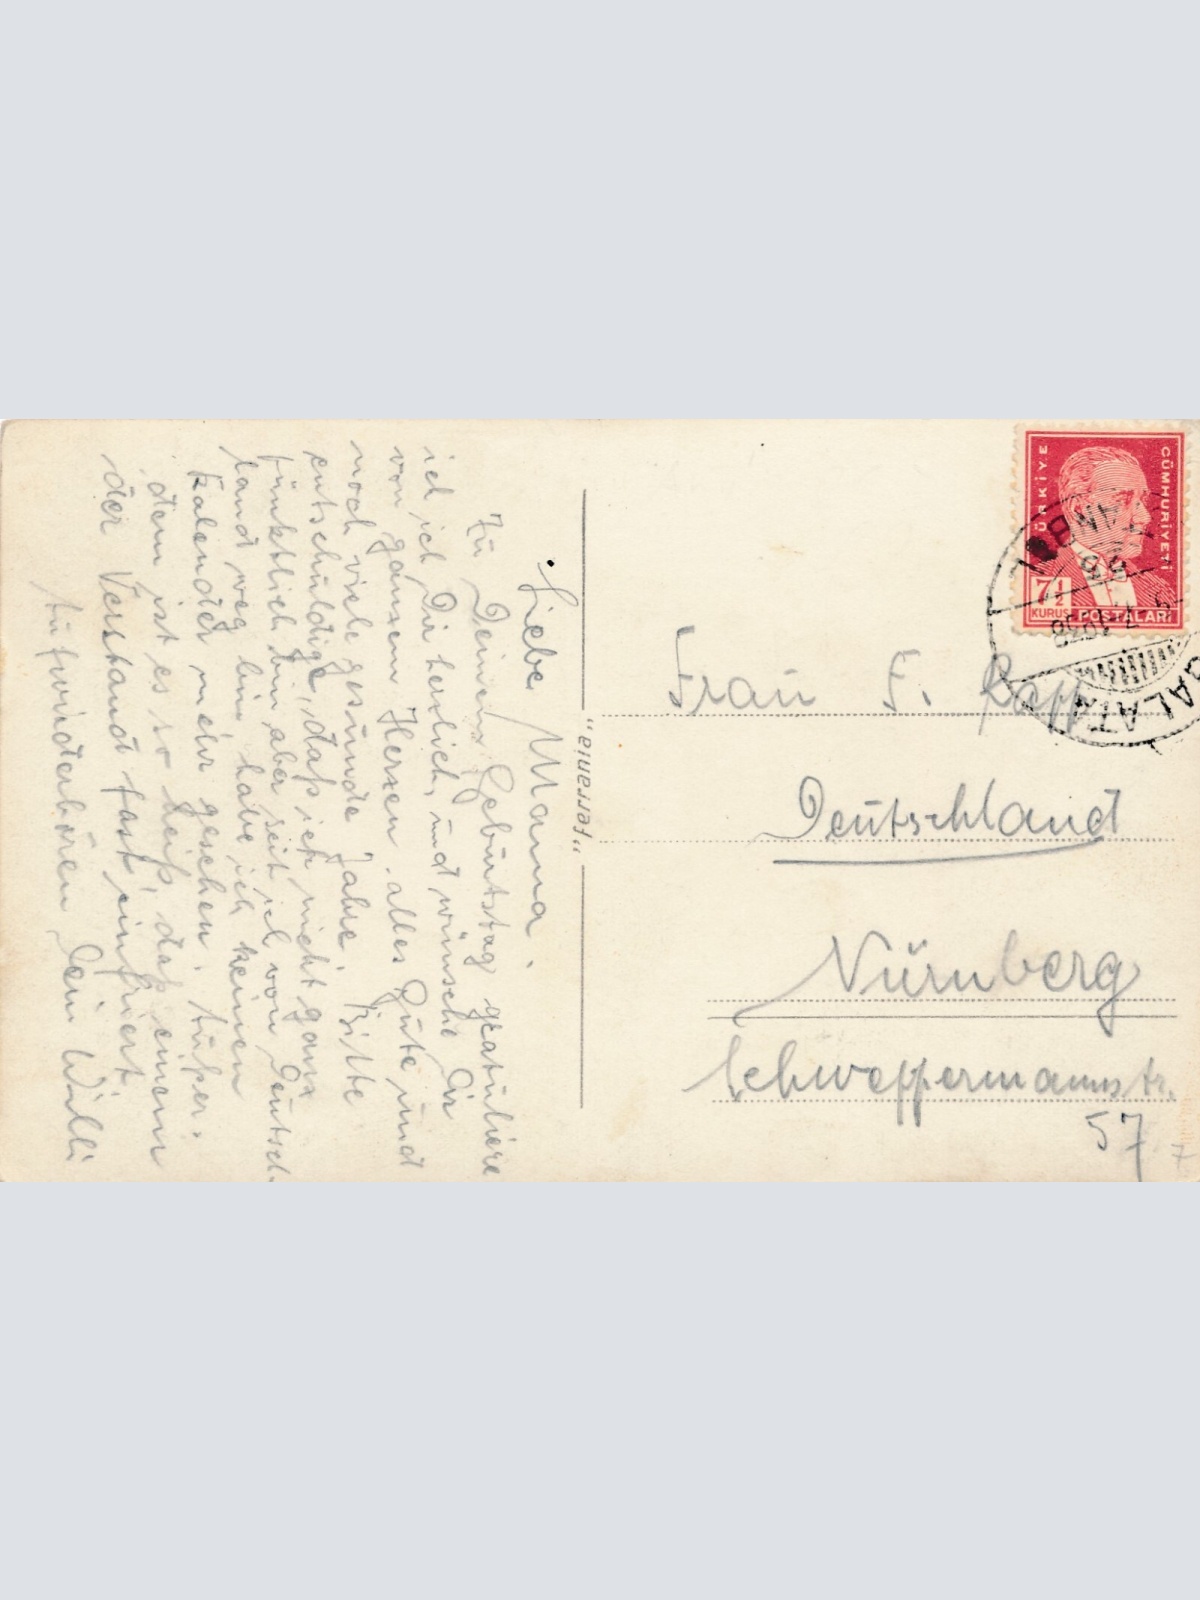 Liebe Mama.
Zu Deinem Geburtstag gratuliere
ich ich Dir herzlich, und wünsche Dir
von ganzem Herzen alles Gute und
noch viele gesunde Jahre. Bitte
entschuldige, daß ich nicht ganz
pünktlich bin aber seit ich von Deutsch-
land weg bin habe ich keinen
Kalender mehr gesehen. Außer-
dem ist es so heiß, daß einem
der Verstand fast einfriert.
Aufwiederhören Dein Willi
"ferrania"
TÜRKİYE CÜMHURİYETİ
7½
KURUŞ POSTALARI
9-7-1938
GALATA
Frau F. Rapp
Deutschland
Nürnberg
Schweppermannstr.
57